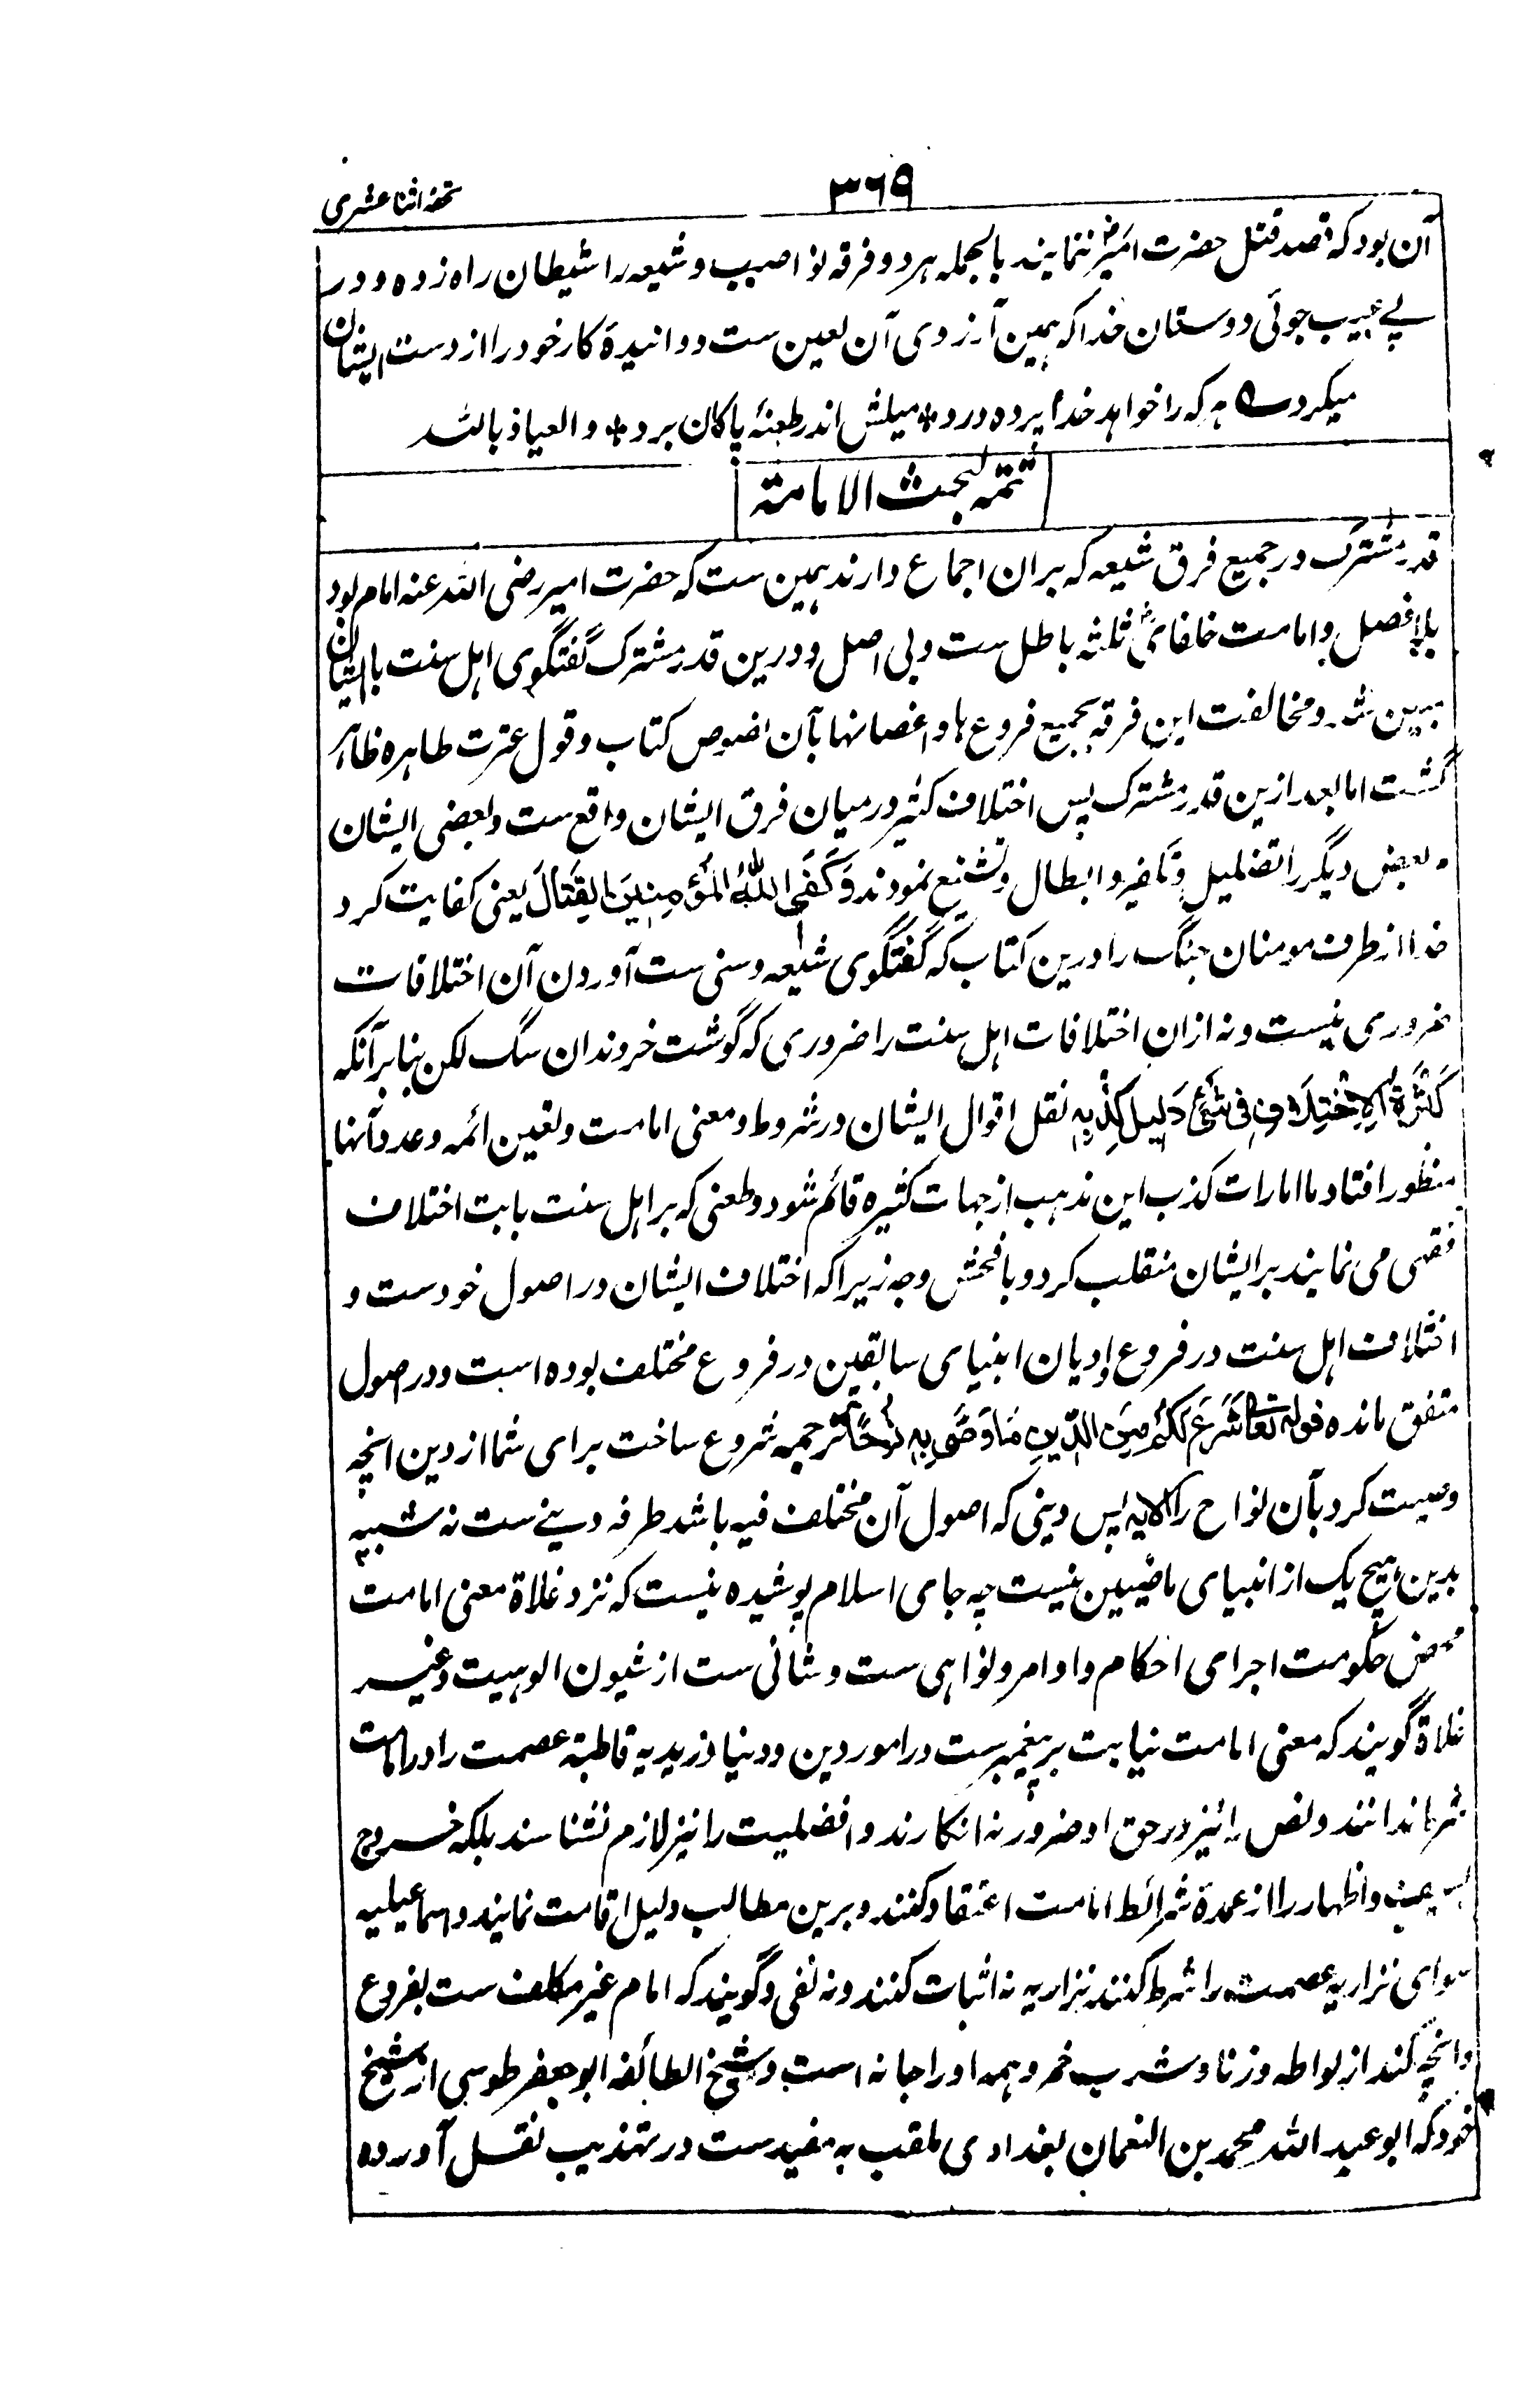 ۳۶۹
تحفه اثنا عشری
آن بود که قصد قتل حضرت امیرؓ ننمایند بالجمله هر دو فرقه نواصیب و شیعه را شیطان راه زده و در
پے عیب جوئی دوستان خدا که همین آرزوی آن لعین ست دوانیده کار خود را از دست ایشان
میکرد ے هر که را خواهد خدا پرده درد * میلش اندر طعنهٔ پاکان برد * و العیاذ بالله
تتمه لبحث الامامته
قدر مشترک در جمیع فرق شیعه که بران اجماع دارند همین ست که حضرت امیر رضی الله عنه امام بود
بلا فصل و امامت خلفایؓ ثلثه باطل ست و بی اصل و درین قدر مشترک گفتگوی اهل سنت با ایشان
مبین شد و مخالفت این فرقه بجمیع فروعها و اغصانها بآن نصوص کتاب و قول عترت طاهره ظاهر
گشت اما بعد ازین قدر مشترک پس اختلاف کثیر درمیان فرق ایشان واقع ست و بعضی ایشان
بعض دیگر را تضلیل و تکفیر و ابطال و تشنیع نمودند وَکَفَی اللّٰهُ المُؤمِنِینَ القِتَالَ یعنی کفایت کرد
خدا از طرف مومنان جنگ را درین کتاب که گفتگوی شیعه و سنی ست آوردن آن اختلافات
ضروری نیست و نه ازان اختلافات اهل سنت را ضروری که گوشت خر دندان سگ لکن بنابر آنکه
کَثرَةُ الاِختِلَافِ فِی شَیءٍ دَلِیلُ کِذبِهِ نقل اقوال ایشان در شروط و معنی امامت و تعین ائمه و عدد آنها
منظور افتاد تا امارات کذب این مذهب از جهات کثیره قائم شود و طعنی که بر اهل سنت بابت اختلاف
فقهی می نمایند بر ایشان منقلب کردد بافحش وجه زیرا که اختلاف ایشان در اصول خودست و
اختلاف اهل سنت در فروع و ادیان انبیای سابقین در فروع مختلف بوده است و در اصول
متفق مانده قوله تعالی شَرَعَ لَکُم مِنَ الدِّینِ مَا وَصّٰی بِهِ نُوحًا ترجمه شروع ساخت برای شما از دین انچه
وصیت کرد بآن نوح را الایه پس دینی که اصول آن مختلف فیه باشد طرفه دینے ست نه شبیه
بدین هیچ یک از انبیای ماضیین نیست چه جای اسلام پوشیده نیست که نزد غلاة معنی امامت
محض حکومت اجرای احکام و اوامر و نواهی ست و شانی ست از شیون الوهیت و غیر
غلاة گویند که معنی امامت نیابت پیغمبرست در امور دین و دنیا و زیدیه قاطبة عصمت را در امامت
شرط ندانند و نص را نیز در حق او ضرور نه انکارند و افضلیت را نیز لازم نشناسند بلکه خروج
بسیف و اظهار را از عمدهٔ شرائط امامت اعتقاد کنند و برین مطالب دلیل اقامت نمایند و اسماعیلیه
سوای نزاریه عصمت را شرط کنند نزاریه نه اثبات کنند و نه نفی و گویند که امام غیر مکلف ست بفروع
و انچه کند از لواطه و زنا و شرب خمر و همه او را جائز است و شیخ الطائفه ابو جعفر طوسی از شیخ
خود که ابو عبد الله محمد بن النعمان بغدادی ملقب به مفیدست در تهذیب نقل آورده